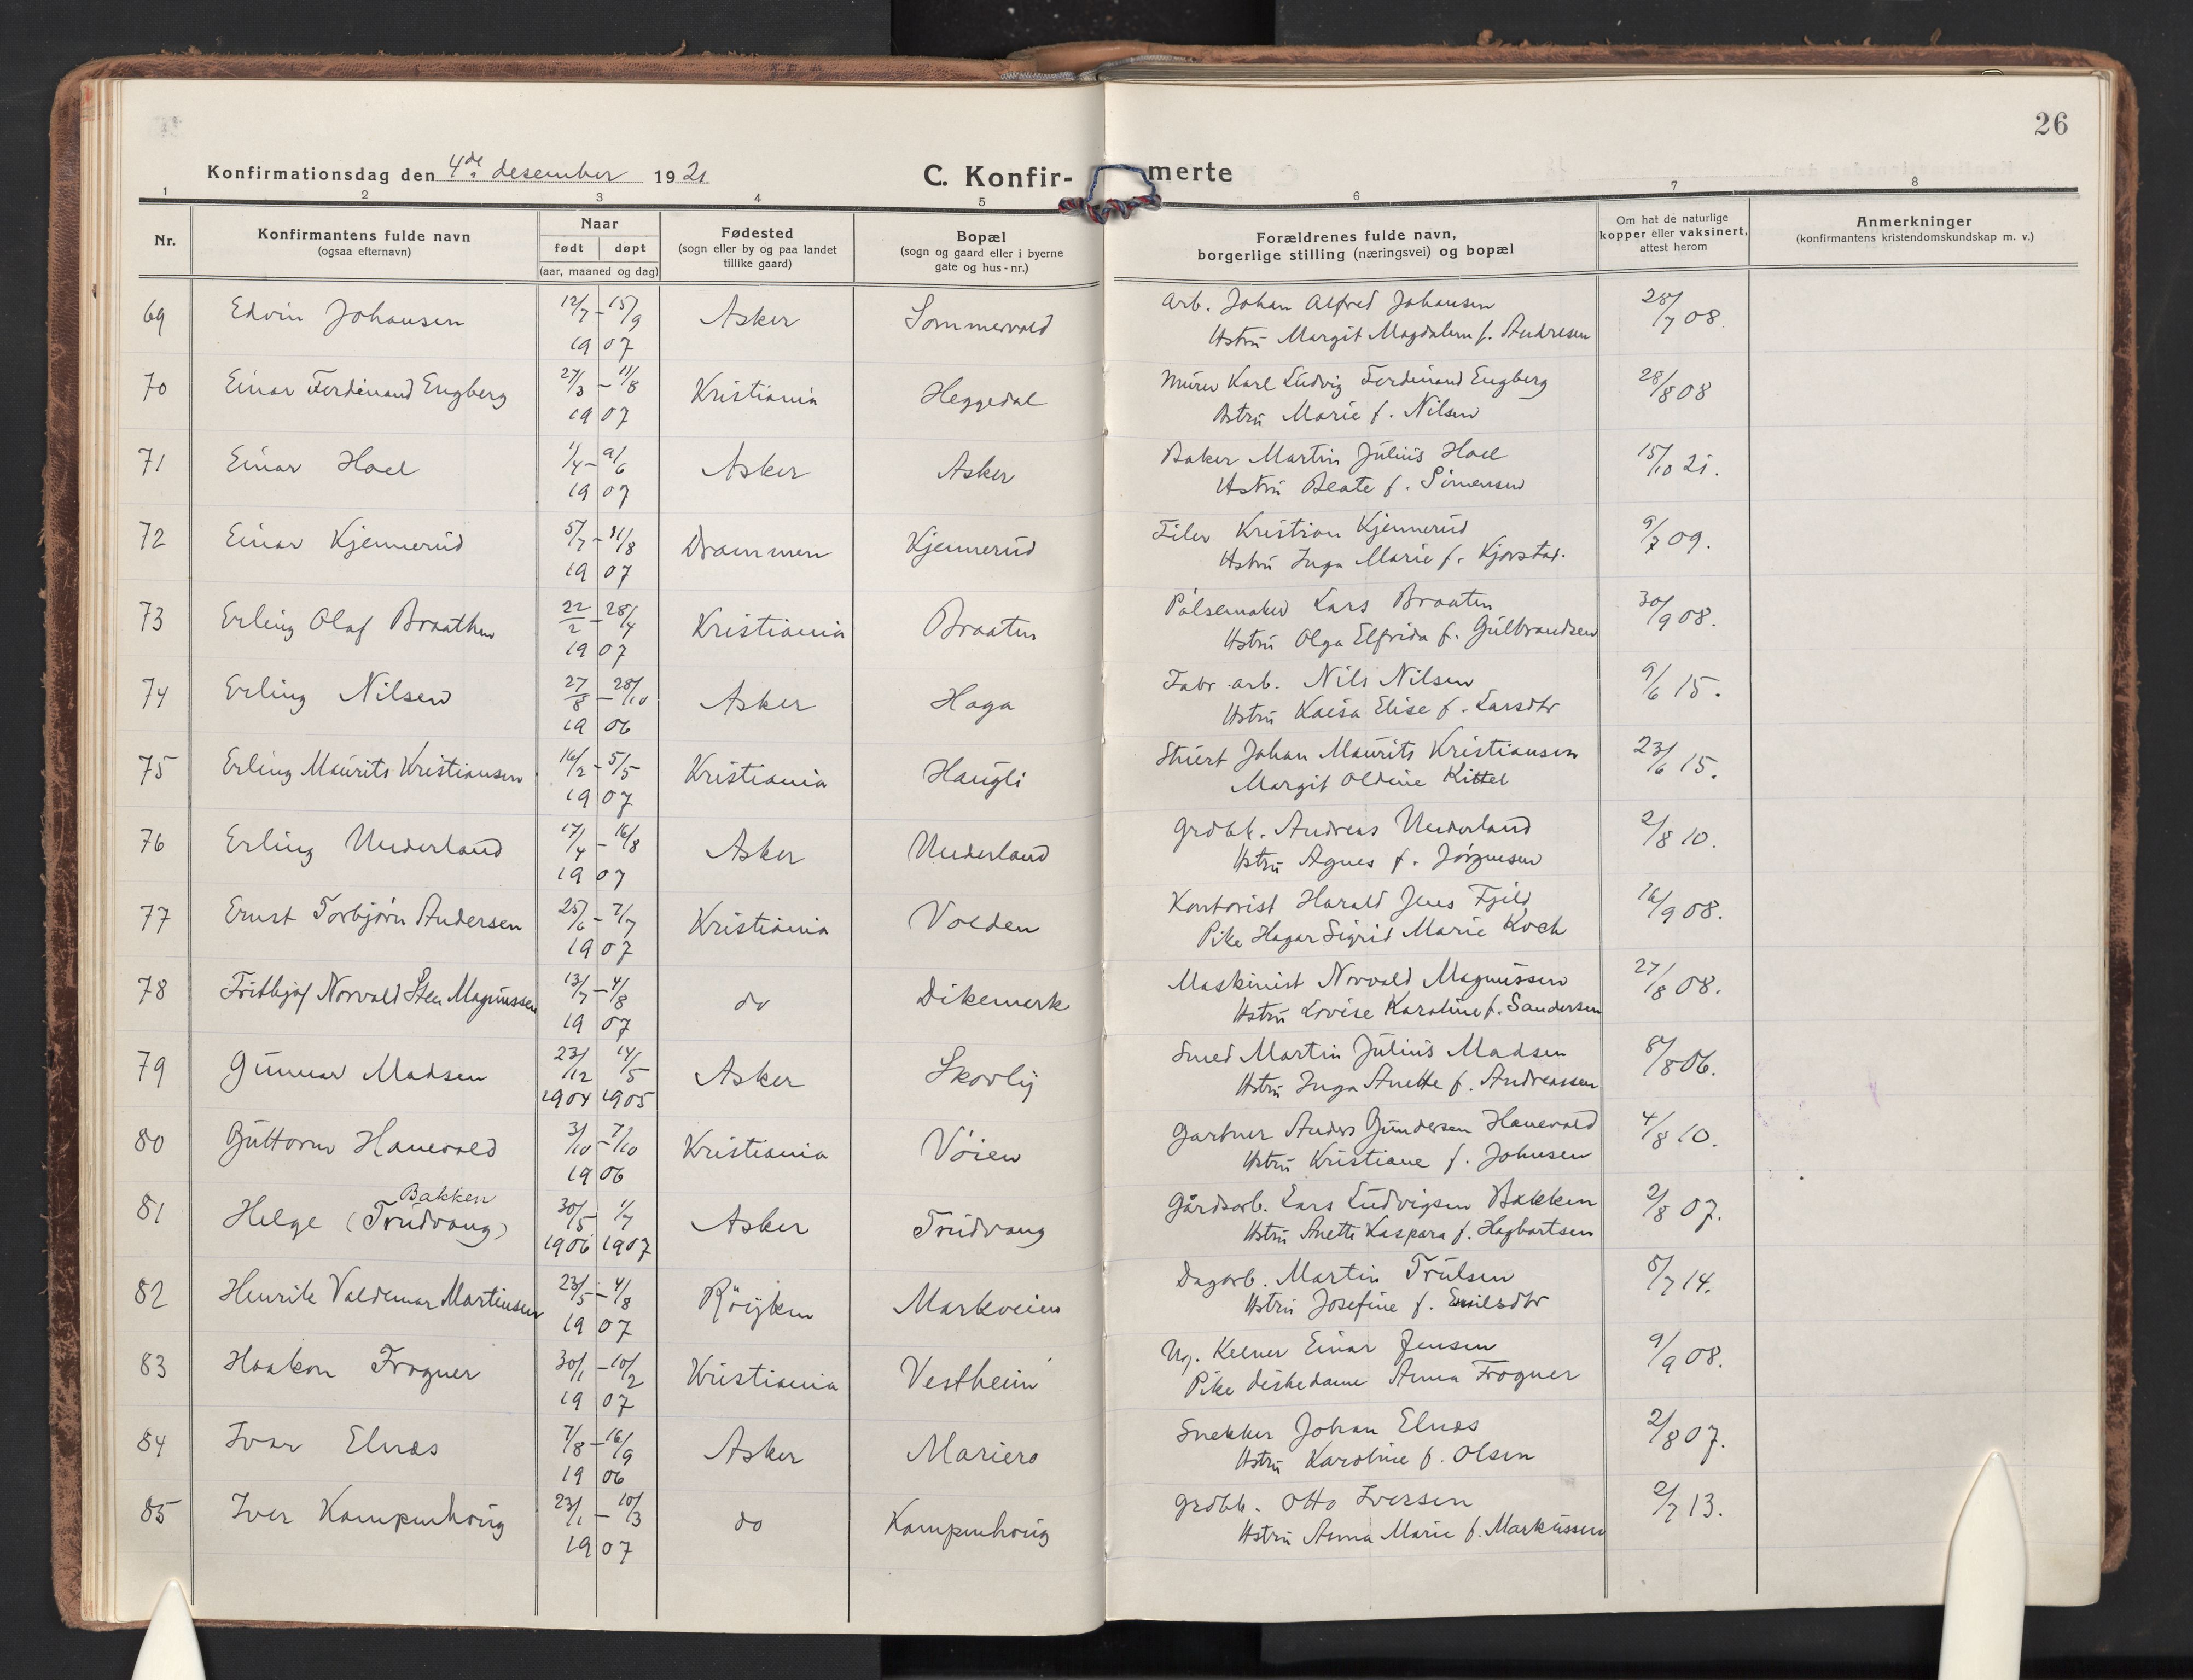 26
Konfirmationsdag den 4de desember 1921
C. Konfirmerte
1 2 3 4 5 6 7 8
Nr. | Konfirmantens fulde navn (ogsaa efternavn) | Naar født døpt (aar, maaned og dag) | Fødested (sogn eller by og paa landet tillike gaard) | Bopæl (sogn og gaard eller i byerne gate og hus-nr.) | Forældrenes fulde navn, borgerlige stilling (næringsvei) og bopæl | Om hat de naturlige kopper eller vaksinert, attest herom | Anmerkninger (konfirmantens kristendomskundskap m. v.)
69 Edvin Johansen 12/7 - 15/9 1907 Asker Sommervold Arb. Johan Alfred Johansen 28/7 08.
Hstrú Margit Magdalena f. Andresen
70 Einar Ferdinand Engberg 27/3 - 11/8 1907 Kristiania Heggedal Murer Karl Ludvig Ferdinand Engberg 28/8 08
Hstrú Marie f. Nilsen
71 Einar Hoel 1/4 - 9/6 1907 Asker Asker Baker Martin Julius Hoel 15/10 21.
Hstrú Beate f. Simensen
72 Einar Kjennerud 5/7 - 11/8 1907 Drammen Kjennerud Filer Kristian Kjennerud 9/7 09.
Hstrú Inga Marie f. Kjørstad.
73 Erling Olaf Braathen 22/2 - 28/4 1907 Kristiania Braaten Pølsemaker Lars Braaten 30/9 08.
Hstrú Olga Elfrida f. Gulbrandsen
74 Erling Nilsen 27/8 - 28/10 1906 Asker Haga Fabr. arb. Nils Nilsen 9/6 15.
Hstrú Kaisa Elise f. Larsdtr
75 Erling Maurits Kristiansen 16/2 - 5/5 1907 Kristiania Haugli Stuert Johan Maurits Kristiansen 23/6 15.
Margit Oldine Kittel
76 Erling Underland 17/4 - 16/8 1907 Asker Underland Grdbk. Andreas Underland 2/8 10.
Hstrú Agnes f. Jörgensen
77 Ernst Torbjørn Andersen 25/6 - 7/7 1907 Kristiania Volden Kontorist Harald Jens Fjeld 16/9 08.
Pike Hagar Sigrid Marie Koch
78 Frithjof Norvald Sten Magnussen 13/7 - 4/8 1907 do Dikemark Maskinist Norvald Magnussen 27/8 08.
Hstrú Lovise Karoline f. Sandersen
79 Gunnar Madsen 23/12 1904 14/5 1905 Asker Skovly Smed Martin Julius Madsen 8/8 06.
Hstrú Inga Anette f. Andreassen
80 Guttorm Hanevold 3/10 - 7/10 1906 Kristiania Vöien Gartner Anders Gundersen Hanevold 4/8 10.
Hstrú Kristiane f. Johnsen
81 Helge (Trudvang) Bakken 30/5 1906 1/7 1907 Asker Trudvang Gårdsarb. Lars Ludvigsen Bakken 2/8 07.
Hstrú Anette Kaspara f. Hagbartsen
82 Henrik Valdemar Martinsen 23/5 - 4/8 1907 Röyken Markveien Dagarb. Martin Trulsen 8/7 14.
Hstrú Josefine f. Emilsdtr
83 Haakon Frogner 30/1 - 10/2 1907 Kristiania Vestheim Ug. Kelner Einar Jensen 9/9 08.
Pike diskedame Anna Frogner
84 Ivar Elnæs 7/8 - 16/9 1906 Asker Mariero Snekker Johan Elnæs 2/8 07.
Hstrú Karoline f. Olsen
85 Iver Kampenhoug 23/1 - 10/3 1907 do Kampenhoug Grdbk. Otto Iversen 2/7 13.
Hstrú Anna Marie f. Markussen